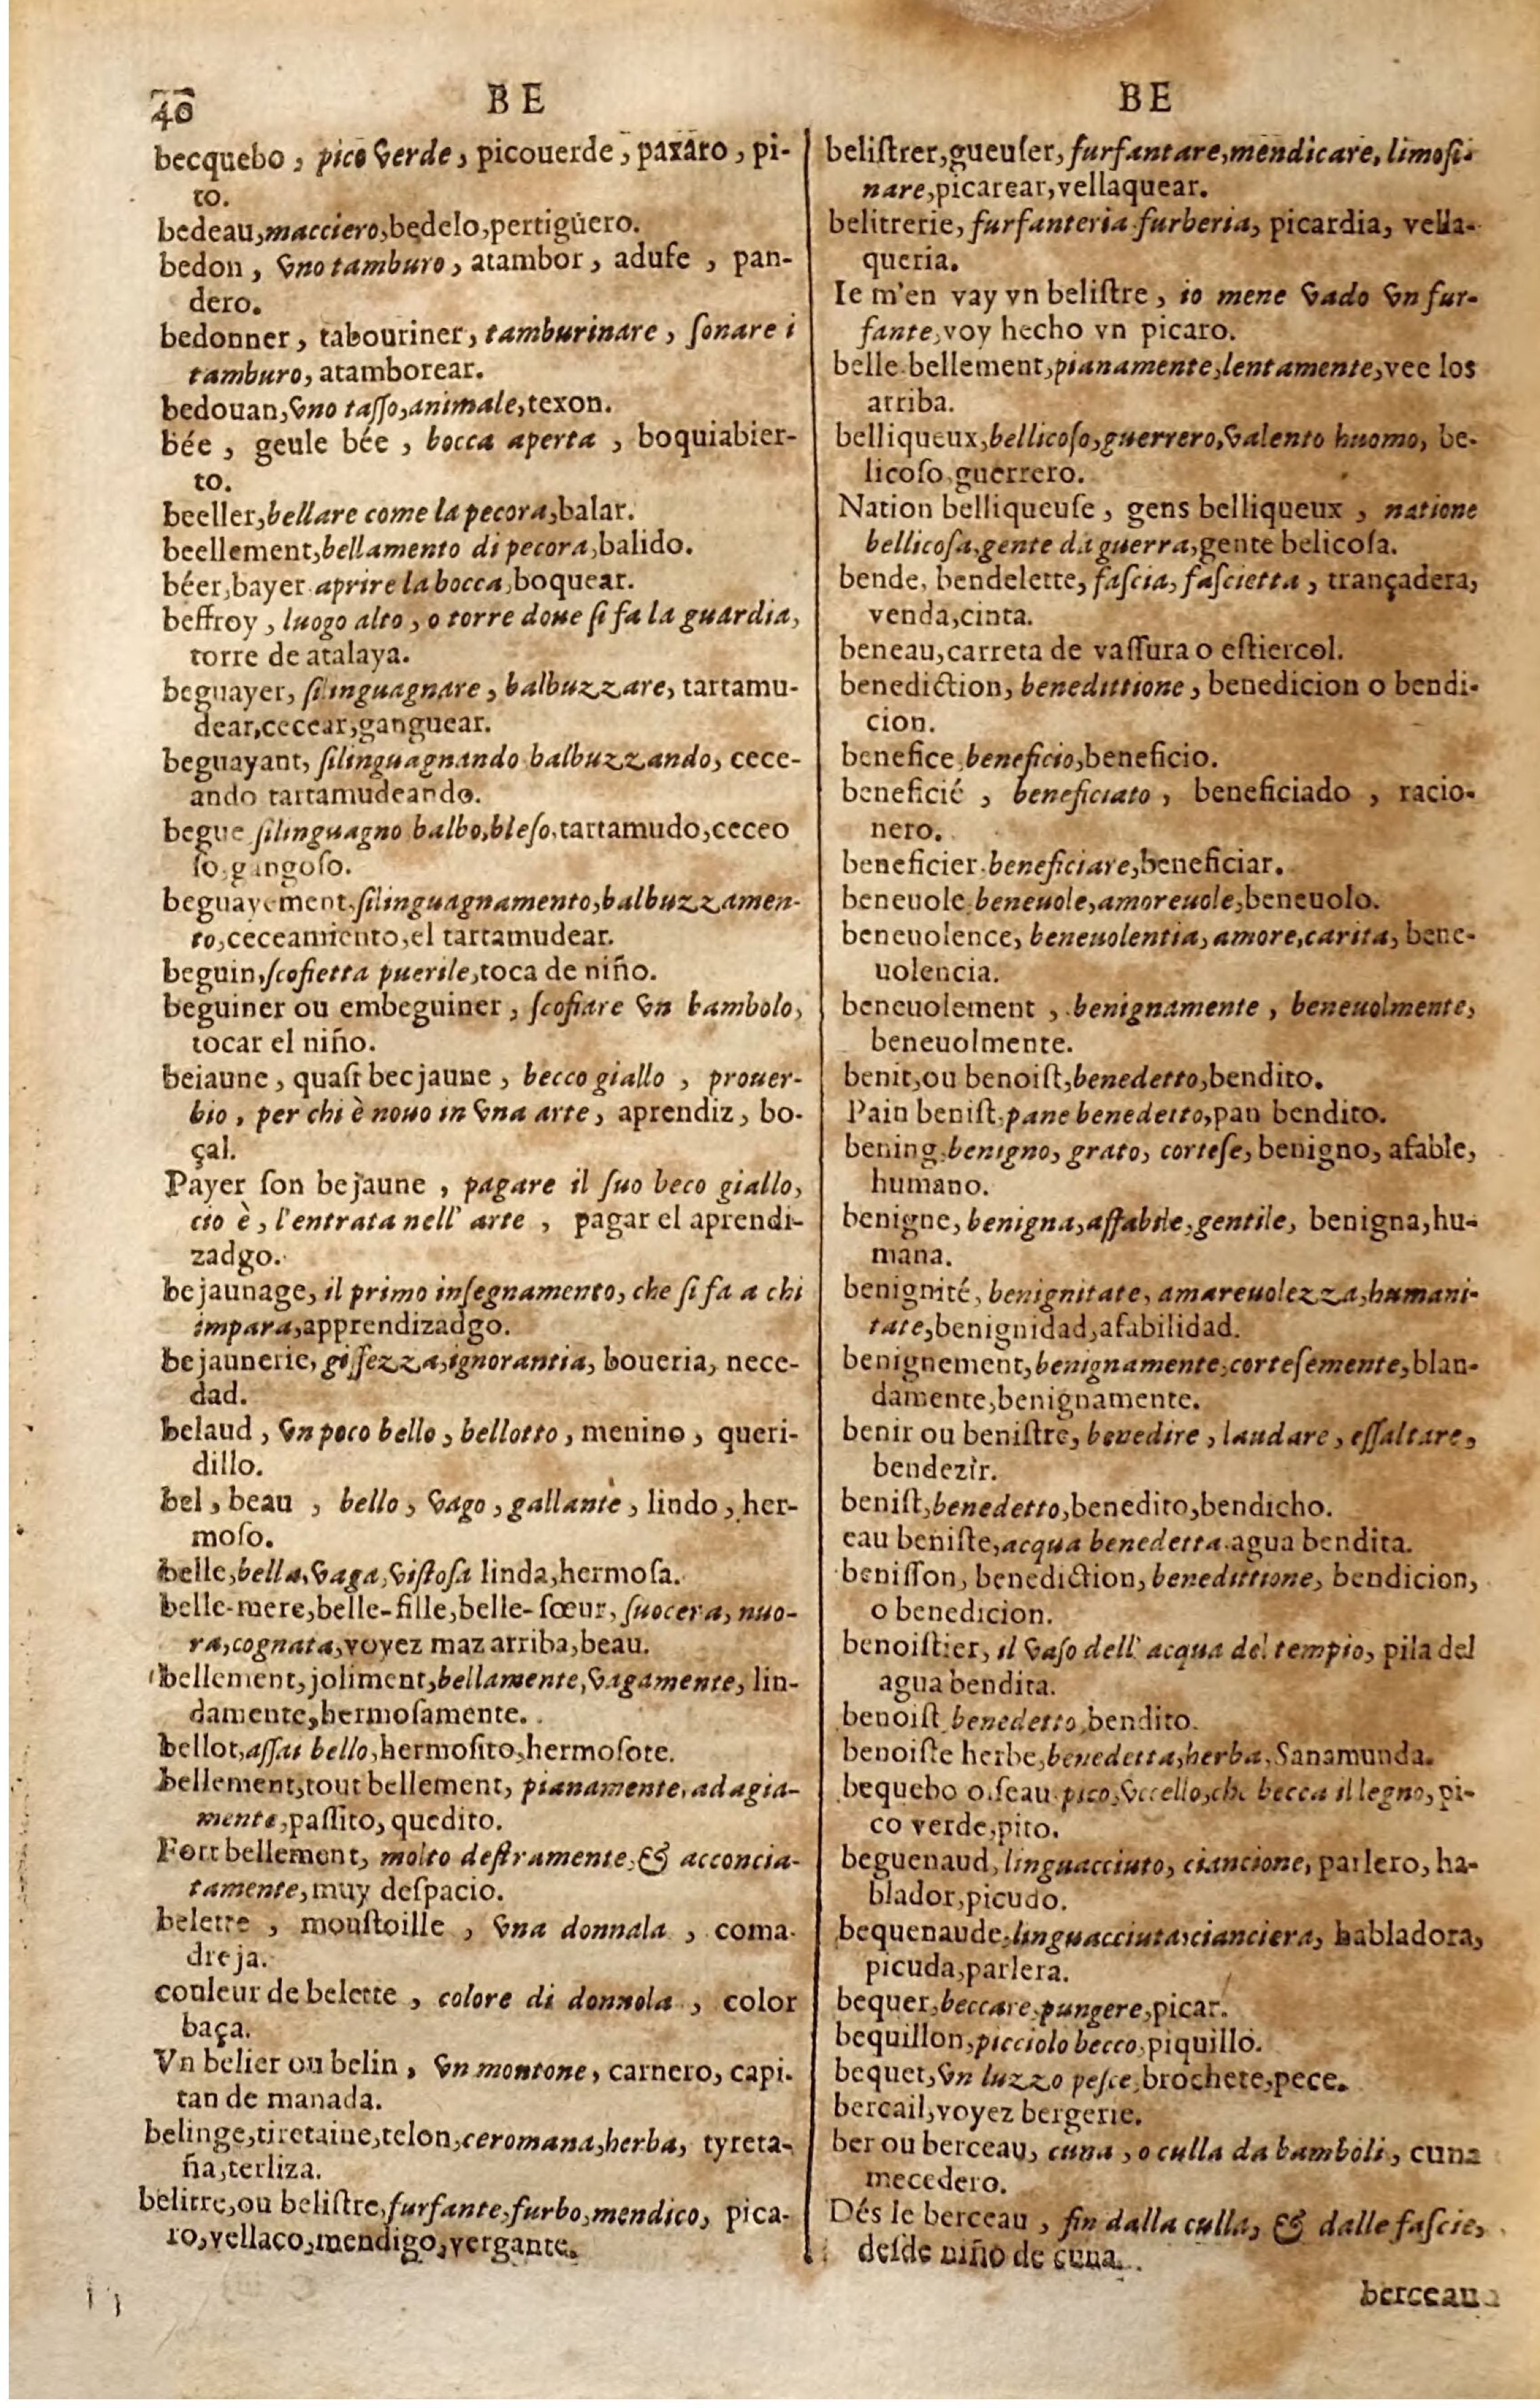 40
BE
becquebo, pico verde, picouerde, paxaro, pi-
to.
bedeau, macciero, bedelo, pertiguero.
bedon, vno tamburo, atambor, adufe, pan-
dero.
bedonner, tabouriner, tamburinare, ſonare i
tamburo, atamborear.
bedouan, vno taſſo, animale, texon.
bée, geule bée, bocca aperta, boquiabier-
to.
beeller, bellare come la pecora, balar.
beellement, bellamento di pecora, balido.
béer, bayer aprire la bocca, boquear.
beffroy, luogo alto, o torre doue ſi fa la guardia,
torre de atalaya.
beguayer, ſilinguagnare, balbuzzare, tartamu-
dear, cecear, ganguear.
beguayant, ſilinguagnando balbuzzando, cece-
ando tartamudeando.
begue ſilinguagno balbo, bleſo, tartamudo, ceceo
ſo, gangoſo.
beguayement, ſilinguagnamento, balbuzzamen-
to, ceceamiento, el tartamudear.
beguin, ſcofietta puerile, toca de niño.
beguiner ou embeguiner, ſcofiare vn bambolo,
tocar el niño.
beiaune, quaſi becjaune, becco giallo, prouer-
bio, per chi è nouo in vna arte, aprendiz, bo-
çal.
Payer ſon bejaune, pagare il ſuo beco giallo,
cio è, l'entrata nell' arte, pagar el aprendi-
zadgo.
bejaunage, il primo inſegnamento, che ſi fa a chi
impara, apprendizadgo.
bejaunerie, goffezza, ignorantia, boueria, nece-
dad.
belaud, vn poco bello, bellotto, menino, queri-
dillo.
bel, beau, bello, vago, gallante, lindo, her-
moſo.
belle, bella, vaga, viſtoſa linda, hermoſa.
belle-mere, belle-fille, belle-ſœur, ſuocera, nuo-
ra, cognata, voyez maz arriba, beau.
bellement, joliment, bellamente, vagamente, lin-
damente, hermoſamente.
bellot, aſſai bello, hermoſito, hermoſote.
bellement, tout bellement, pianamente, adagia-
mente, paſſito, quedito.
Fort bellement, molto deſtramente, & acconcia-
tamente, muy deſpacio.
belette, mouſtoille, vna donnala, coma-
dreja.
couleur de belette, colore di donnola, color
baça.
Vn belier ou belin, vn montone, carnero, capi-
tan de manada.
belinge, tiretaine, telon, ceromana, herba, tyreta-
ña, terliza.
belitre, ou beliſtre, furfante, furbo, mendico, pica-
ro, vellaco, mendigo, vergante.
BE
beliſtrer, gueuſer, furfantare, mendicare, limoſi-
nare, picarear, vellaquear.
belitrerie, furfanteria furberia, picardia, vella-
queria.
Ie m'en vay vn beliſtre, io mene vado vn fur-
fante, voy hecho vn picaro.
belle bellement, pianamente, lentamente, vee los
arriba.
belliqueux, bellicoſo, guerrero, valento huomo, be-
licoſo, guerrero.
Nation belliqueuſe, gens belliqueux, natione
bellicoſa, gente da guerra, gente belicoſa.
bende, bendelette, faſcia, faſcietta, trançadera,
venda, cinta.
beneau, carreta de vaſſura o eſtiercol.
benediction, benedittione, benedicion o bendi-
cion.
benefice, beneficio, beneficio.
beneficié, beneficiato, beneficiado, racio-
nero.
beneficier, beneficiare, beneficiar.
beneuole, beneuole, amoreuole, beneuolo.
beneuolence, beneuolentia, amore, carita, bene-
uolencia.
beneuolement, benignamente, beneuolmente,
beneuolmente.
benit, ou benoiſt, benedetto, bendito.
Pain beniſt, pane benedetto, pan bendito.
bening, benigno, grato, corteſe, benigno, afable,
humano.
benigne, benigna, affabile, gentile, benigna, hu-
mana.
benignité, benignitate, amareuolezza, humani-
tate, benignidad, afabilidad.
benignement, benignamente, corteſemente, blan-
damente, benignamente.
benir ou beniſtre, benedire, laudare, eſſaltare,
bendezir.
beniſt, benedetto, benedito, bendicho.
eau beniſte, acqua benedetta agua bendita.
beniſſon, benediction, benedittione, bendicion,
o benedicion.
benoiſtier, il vaſo dell' acqua del tempio, pila del
agua bendita.
benoiſt, benedetto, bendito.
benoiſte herbe, benedetta, herba, Sanamunda.
bequebo oiſeau, pico, vccello, che becca il legno, pi-
co verde, pito.
beguenaud, linguacciuto, ciancione, parlero, ha-
blador, picudo.
bequenaude, linguacciuta, cianciera, habladora,
picuda, parlera.
bequer, beccare, pungere, picar.
bequillon, picciolo becco, piquillo.
bequet, vn luzzo peſce, brochete, pece.
bercail, voyez bergerie.
ber ou berceau, cuna, o culla da bamboli, cuna
mecedero.
Dés le berceau, fin dalla culla, & dalle faſcie,
deſde niño de cuna.
berceau